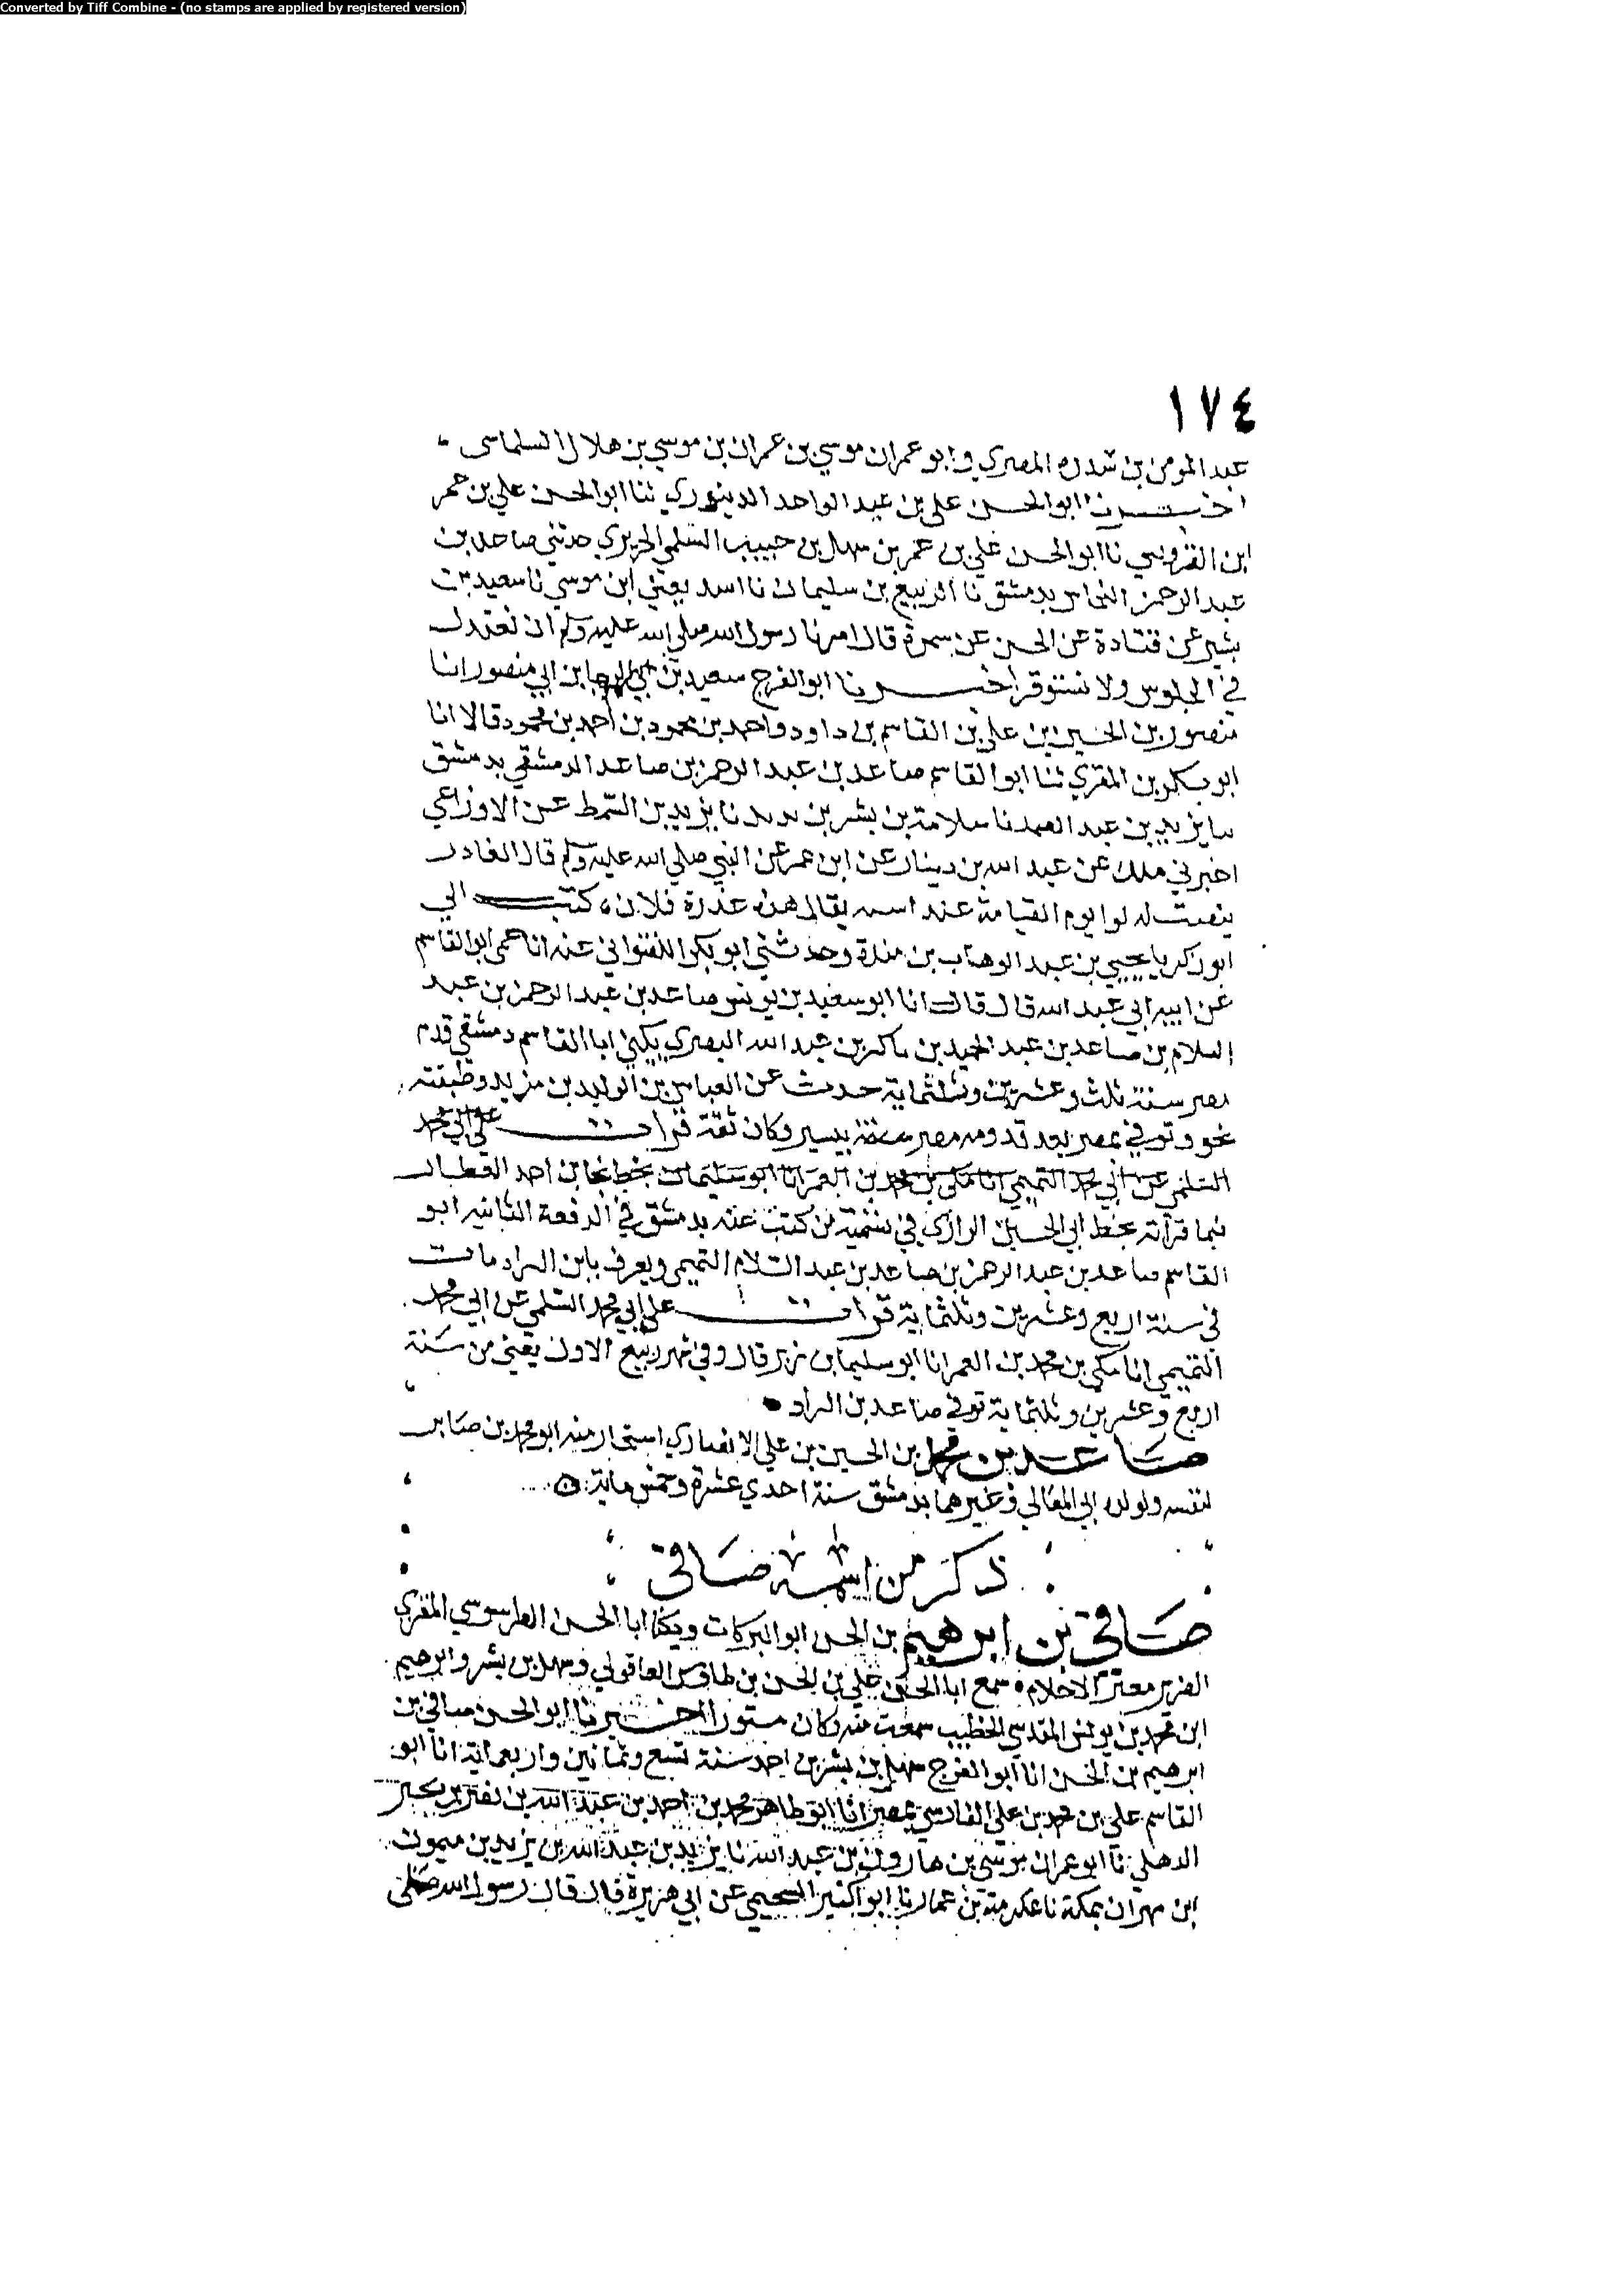 Converted by Tiff Combine - (no stamps are applied by registered version)
١٧٤
عبد المومن بن شدره المصري وابو عمران موسي بن عمران بن موسي بن هلال السلماسى
اخبرنا ابو الحسن علي بن عبد الواحد الدينوري ثنا ابو الحسن علي بن عمر
ابن القزويني نا ابو الحسن علي بن عمر بن سهل بن حبيب السلمي الحريري حدثني صاعد بن
عبد الرحمن النحاس بدمشق نا الربيع بن سليمان نا اسد يعني ابن موسي نا سعيد بن
بشير عن قتادة عن الحسن عن سمرة قال امرنا رسول الله صلى الله عليه وسلم ان نعتدل
في الجلوس ولا نستوفز اخبرنا ابو الفرج سعيد بن ابي الرجا بن ابي منصور انا
منصور بن الحسين بن علي بن القاسم بن داود واحمد بن محمود بن احمد بن محمود قالا انا
ابو بكر بن المقري ثنا ابو القاسم صاعد بن عبد الرحمن بن صاعد الدمشقي بدمشق
نا يزيد بن عبد الصمد نا سلامة بن بشر بن بديل نا يزيد بن السمط عن الاوزاعي
اخبرني ملك عن عبد الله بن دينار عن ابن عمر عن النبي صلي الله عليه وسلم قال الغادر
ينصب له لوا يوم القيامة عند يقال هذه غدرة فلان، كتب الي
ابو زكريا يحيي بن عبد الوهاب بن مندة وحدثني ابو بكر اللفتواني عنه انا عمى ابو القاسم
عن ابيه ابي عبد الله قال قال انا ابو سعيد بن يونس صاعد بن عبد الرحمن بن عبد
السلام بن صاعد بن عبد الحميد بن بن عبد الله البصري يكني ابا القاسم دمشقي قدم
مصر سنة ثلث وعشرين وثلثماية حدث عن العباس بن الوليد بن مزيد وطبقته
نحو وتوفي بمصر بعد قدومه مصر بيسير وكان ثقة قرات علي ابي محمد
السلمي عن ابي محمد التميمي انا مكي بن محمد بن الغمر انا ابو سليمان بخط نجا بن احمد العطار
فيما قرأته بخط ابي الحسين الرازي في تسمية من كتب عنه بدمشق في الدفعة الثانيه ابو
القاسم صاعد بن عبد الرحمن بن صاعد بن عبد السلام التميمي ويعرف بابن البراد مات
في سنة اربع وعشرين وثلثماية قرات على ابي محمد السلمي عن ابي محمد
التميمي انا مكي بن محمد بن الغمر انا ابو سليمان بن زبر قال وفي شهر ربيع الاول يعني من سنة
اربع وعشرين وثلثماية توفي صاعد بن البراد
صاعد بن محمد بن الحسين بن علي الانصاري استجاز منه ابو محمد بن صابر
لنفسه ولولده ابي المعالي وغيرهما بدمشق سنة احدي عشرة وخمس ماية
ذكر من اسمه صافي
صافي بن ابرهيم بن الحسن ابو البركات ويكنا ابا الحسن الطرسوسي المقري
الضرير معبر الاحلام سمع ابا الحسن علي بن الحسن بن طاوس العاقولي وسهل بن بشر وابرهيم
ابن محمد بن يونس المقدسي الخطيب سمعت منه وكان مستورا اخبرنا ابو الحسن صافي بن
ابرهيم بن الحسن انا ابو الفرج سهل بن بشر بن احمد سنة تسع وثمانين واربعماية انا ابو
القاسم علي بن محمد بن علي الفارسي بمصر انا ابو طاهر محمد بن احمد بن عبد الله بن نصر بن بجير
الذهلي نا ابو عمران موسى بن هارون بن عبد الله نا يزيد بن عبد الله بن يزيد بن ميمون
ابن مهران بمكة نا عكرمة بن عمار نا ابو كثير السحيمي عن ابي هريرة قال قال رسول الله صلى